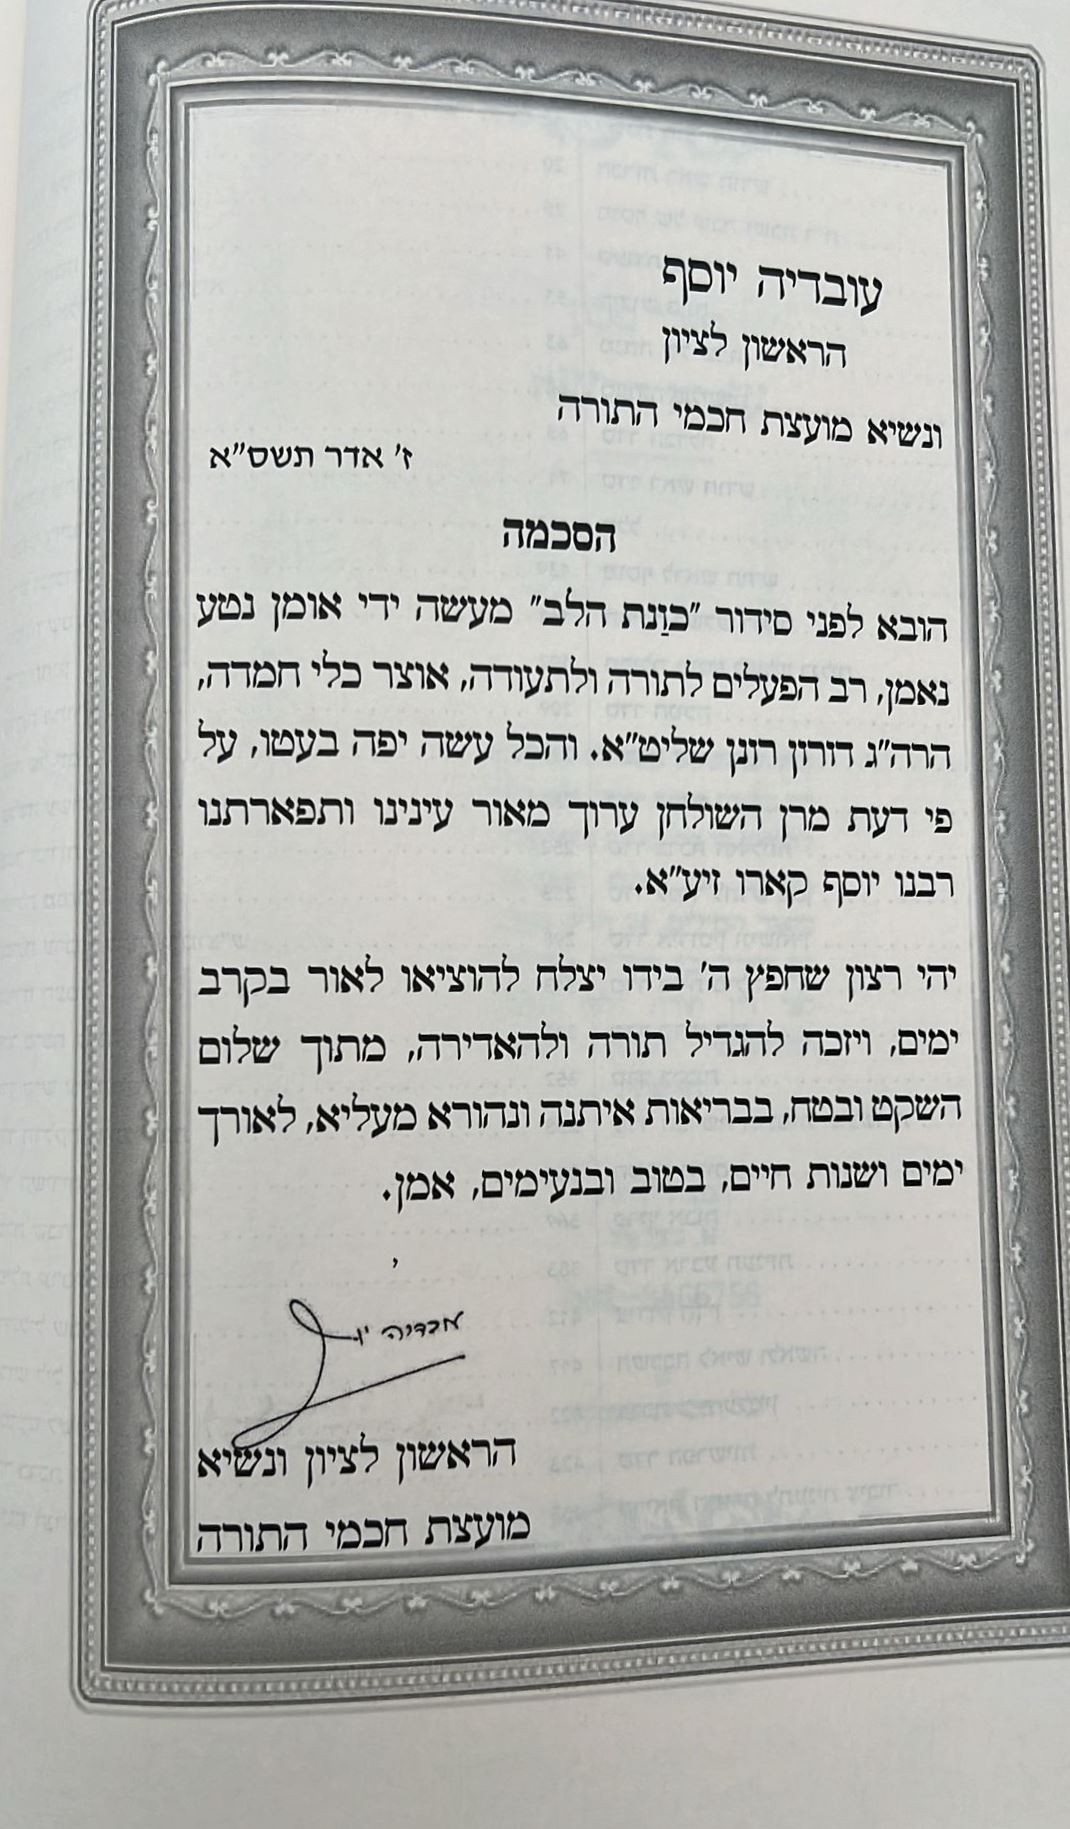 עובדיה יוסף
הראשון לציון
ונשיא מועצת חכמי התורה
ז' אדר תשס"א
הסכמה
הובא לפני סידור "כוַנת הלב" מעשה ידי אומן נטע
נאמן, רב הפעלים לתורה ולתעודה, אוצר כלי חמדה,
הרה"ג דורון רונן שליט"א. והכל עשה יפה בעטו, על
פי דעת מרן השולחן ערוך מאור עינינו ותפארתנו
רבנו יוסף קארו זיע"א.
יהי רצון שחפץ ה' בידו יצלח להוציאו לאור בקרב
ימים, ויזכה להגדיל תורה ולהאדירה, מתוך שלום
השקט ובטח, בבריאות איתנה ונהורא מעליא, לאורך
ימים ושנות חיים, בטוב ובנעימים, אמן.
הראשון לציון ונשיא
מועצת חכמי התורה